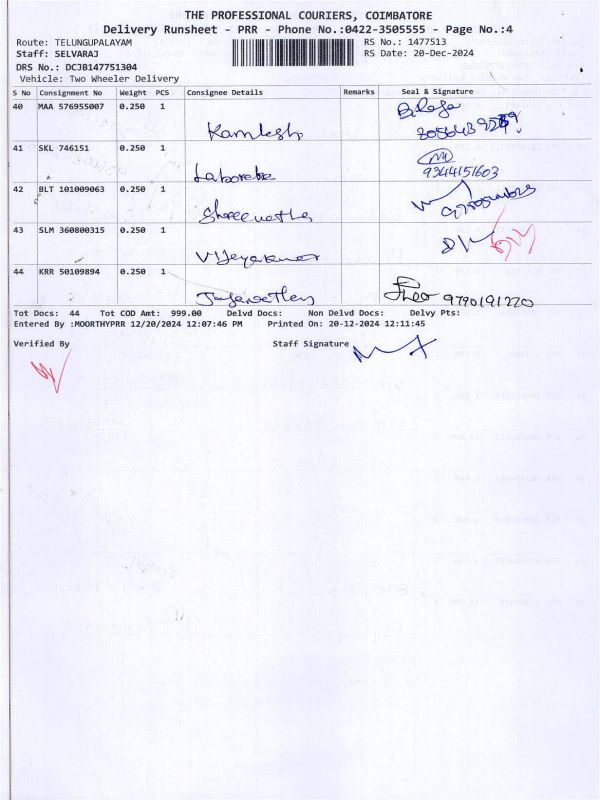 THE PROFESSIONAL COURIERS, COIMBATORE
Delivery Runsheet - PRR - Phone No.:0422-3505555 - Page No.:4
Route: TELUNGUPALAYAM RS No.: 1477513
Staff: SELVARAJ RS Date: 20-Dec-2024
DRS No.: DCJB147751304
Vehicle: Two Wheeler Delivery
S No Consignment No Weight PCS Consignee Details Remarks Seal & Signature
40 MAA 576955007 0.250 1
Kamlesh
41 SKL 746151 0.250 1
9344151603
42 BLT 101009063 0.250 1
43 SLM 360800315 0.250 1
Vijayakumar
44 KRR 50109894 0.250 1
9790191220
Tot Docs: 44 Tot COD Amt: 999.00 Delvd Docs: Non Delvd Docs: Delvy Pts:
Entered By :MOORTHYPRR 12/20/2024 12:07:46 PM Printed On: 20-12-2024 12:11:45
Verified By Staff Signature